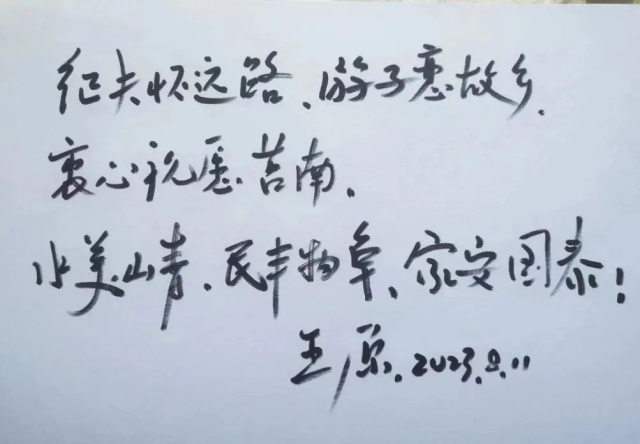 征夫怀远路、游子恋故乡.
衷心祝愿莒南、
水美山青、民丰物阜、家安国泰!
王原. 2023.8.11